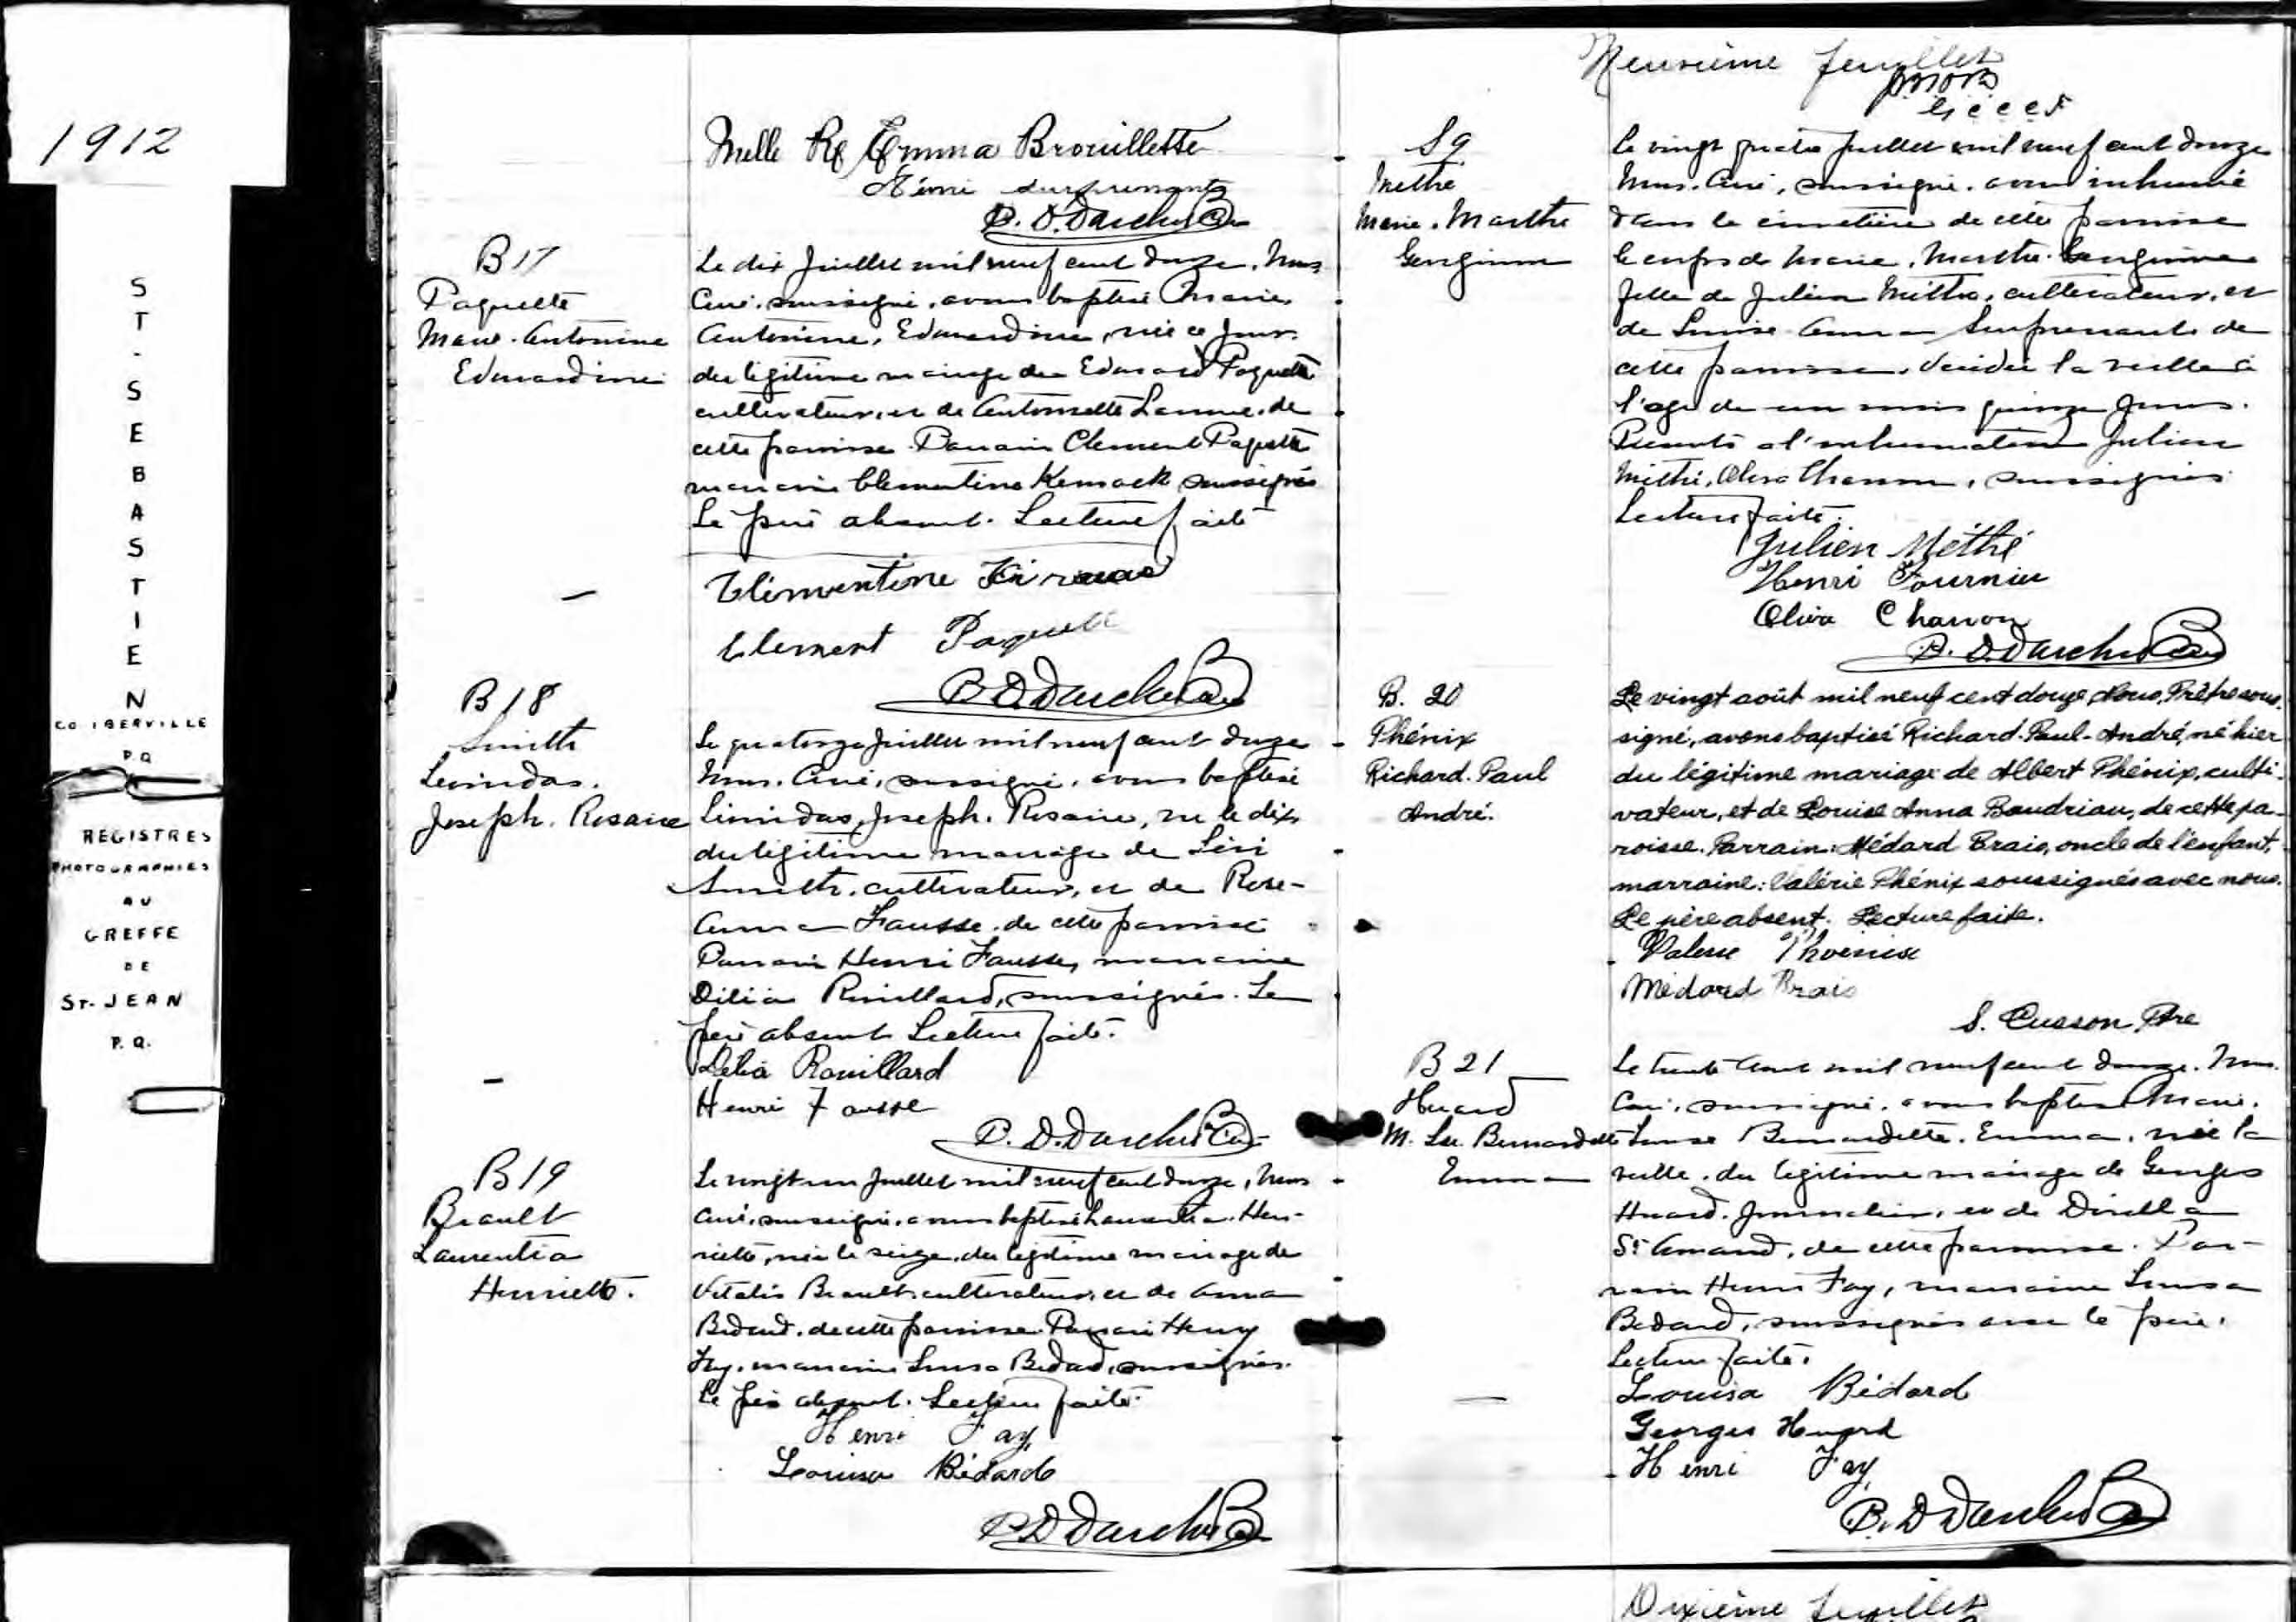 1912
ST-SEBASTIEN
CO IBERVILLE
P.Q
REGISTRES
PHOTOGRAPHIES
AU
GREFFE
DE
ST. JEAN
P.Q.
Melle Emma Brouillette
B17
Paquette
Marie-Antonine
Edouardine
Le dix Juillet mil neuf cent douze. Nous
Curé, soussigné, avons baptisé Marie,
Antonine, Edouardine, née ce jour
du légitime mariage de Edouard Paquette
cultivateur, et de Antoinette Larme, de
cette paroisse. Parrain Clement Paquette
marraine Clementine soussignés
Le père absent. Lecture faite
Clémentine
Clement Paquette
B18
Smith
Leonidas.
Joseph. Rosaire
Le quatorze Juillet mil neuf cent douze
Nous, Curé, soussigné, avons baptisé
Leonidas, Joseph. Rosaire, né le dix
du légitime mariage de Lévi
Smith, cultivateur, et de Rose-
Anna Fausse, de cette paroisse
Parrain Henri Fausse, marraine
Délia Rouillard, soussignés. Le
père absent. Lecture faite.
Délia Rouillard
Henri Fausse
B19
Breault
Laurentia
Henriette.
Le vingt un Juillet mil neuf cent douze, Nous
Curé, soussigné, avons baptisé Laurentia. Hen-
riette, née le seize, du légitime mariage de
Vitalis Breault, cultivateur, et de Anna
Bédard, de cette paroisse. Parrain Henry
Fay, marraine Louisa Bédard, soussignés.
Le père absent. Lecture faite.
Henri Fay
Louisa Bédard
Neuvième feuillet
S9
Methé
Marie. Marthe
Georgianna
Le vingt quatre Juillet mil neuf cent douze
Nous. Curé, soussigné, avons inhumé
dans le cimetière de cette paroisse
le corps de Marie. Marthe.
fille de Julien Methé, cultivateur, et
de Louise Anna Surprenant, de
cette paroisse, décédée la veille à
l'age de un mois quinze jours.
Présents à l'inhumation Julien
Methé, Oliva Charron, soussignés.
Lecture faite.
Julien Méthé
Henri Fournier
Oliva Charron
B. 20
Phénix
Richard. Paul
André.
Le vingt août mil neuf cent douze, Nous, Prêtre sous-
signé, avons baptisé Richard-Paul-André, né hier
du légitime mariage de Albert Phénix, culti-
vateur, et de Louise Anna Baudriau, de cette pa-
roisse. Parrain: Médard Brais, oncle de l'enfant,
marraine: Valérie Phénix soussignés avec nous.
Le père absent. Lecture faite.
Valerie Phoenix
Médard Brais
S. Cusson Ptre
B21
Huard
M. Ls. Bernardette
Emma
Le trente Aout mil neuf cent douze. Nous
Curé, soussigné, avons baptisé Marie.
Louise Bernardette. Emma, née la
veille, du légitime mariage de Georges
Huard. Journalier, et de
St Amand, de cette paroisse. Par-
rain Henri Fay, marraine Louisa
Bédard, soussignés avec le père.
Lecture faite.
Louisa Bédard
Georges Huard
Henri Fay
Dixième feuillet